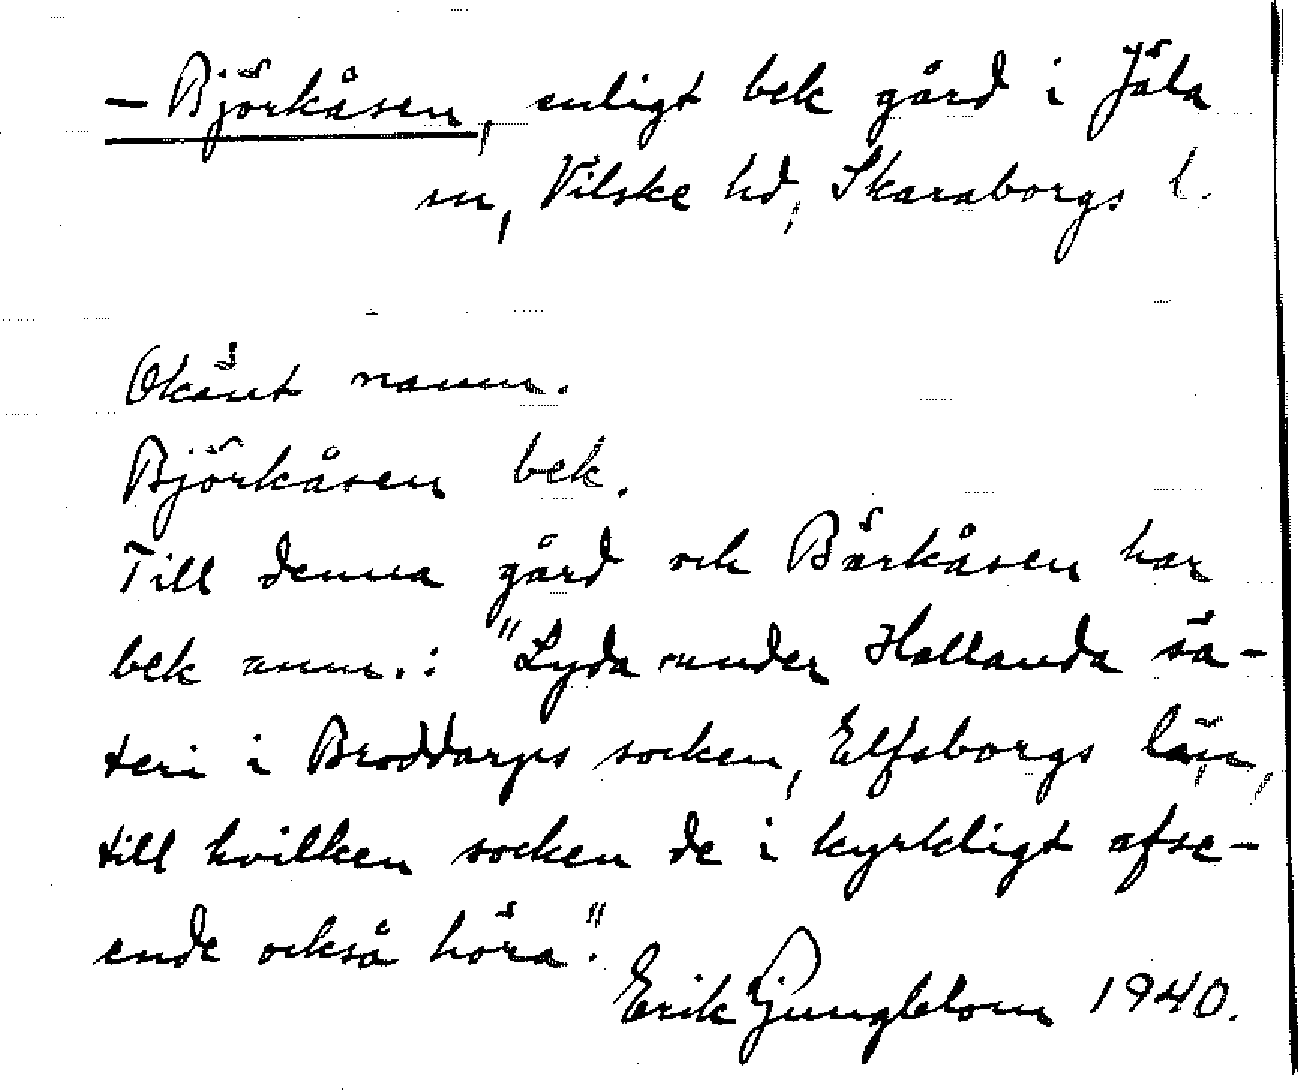 – Björkåsen, enligt bek gård i Jäla
sn, Vilske hd, Skaraborgs l.
Okänt namn.
Björkåsen bek.
Till denna gård och Bärkåsen har
bek anm.: "Lyda under Hallanda sä-
teri i Broddarps socken, Elfsborgs län,
till hvilken socken de i kyrkligt afse-
ende också höra".
Erik Ljungblom 1940.